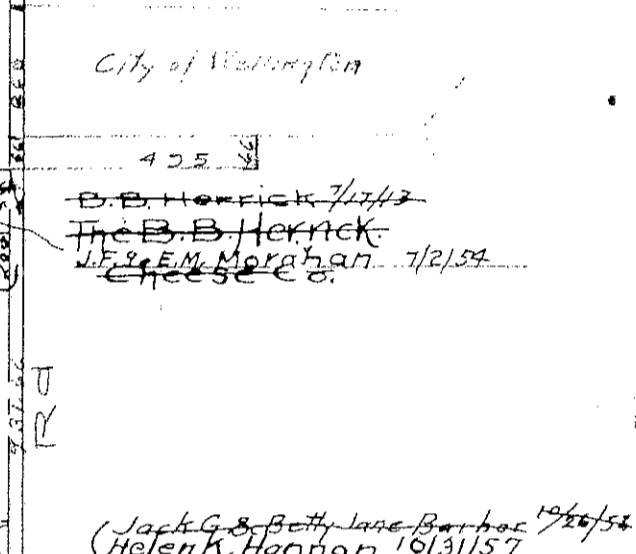 City of Wellington
495 66
B.B. Herrick 7/17/13
The B.B. Herrick
J.F. & E.M. Morahan 7/2/54
Cheese Co.
Rd
(Jack G & Betty Jane Barbor 10/26/54
(Helen K. Hannan 10/31/57